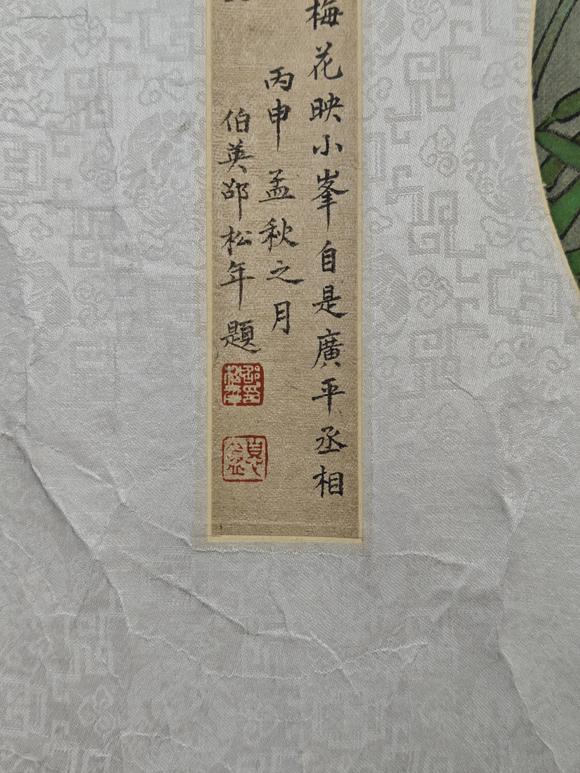 梅花映小峯自是廣平丞相
丙申孟秋之月
伯英邵松年題
邵印松年